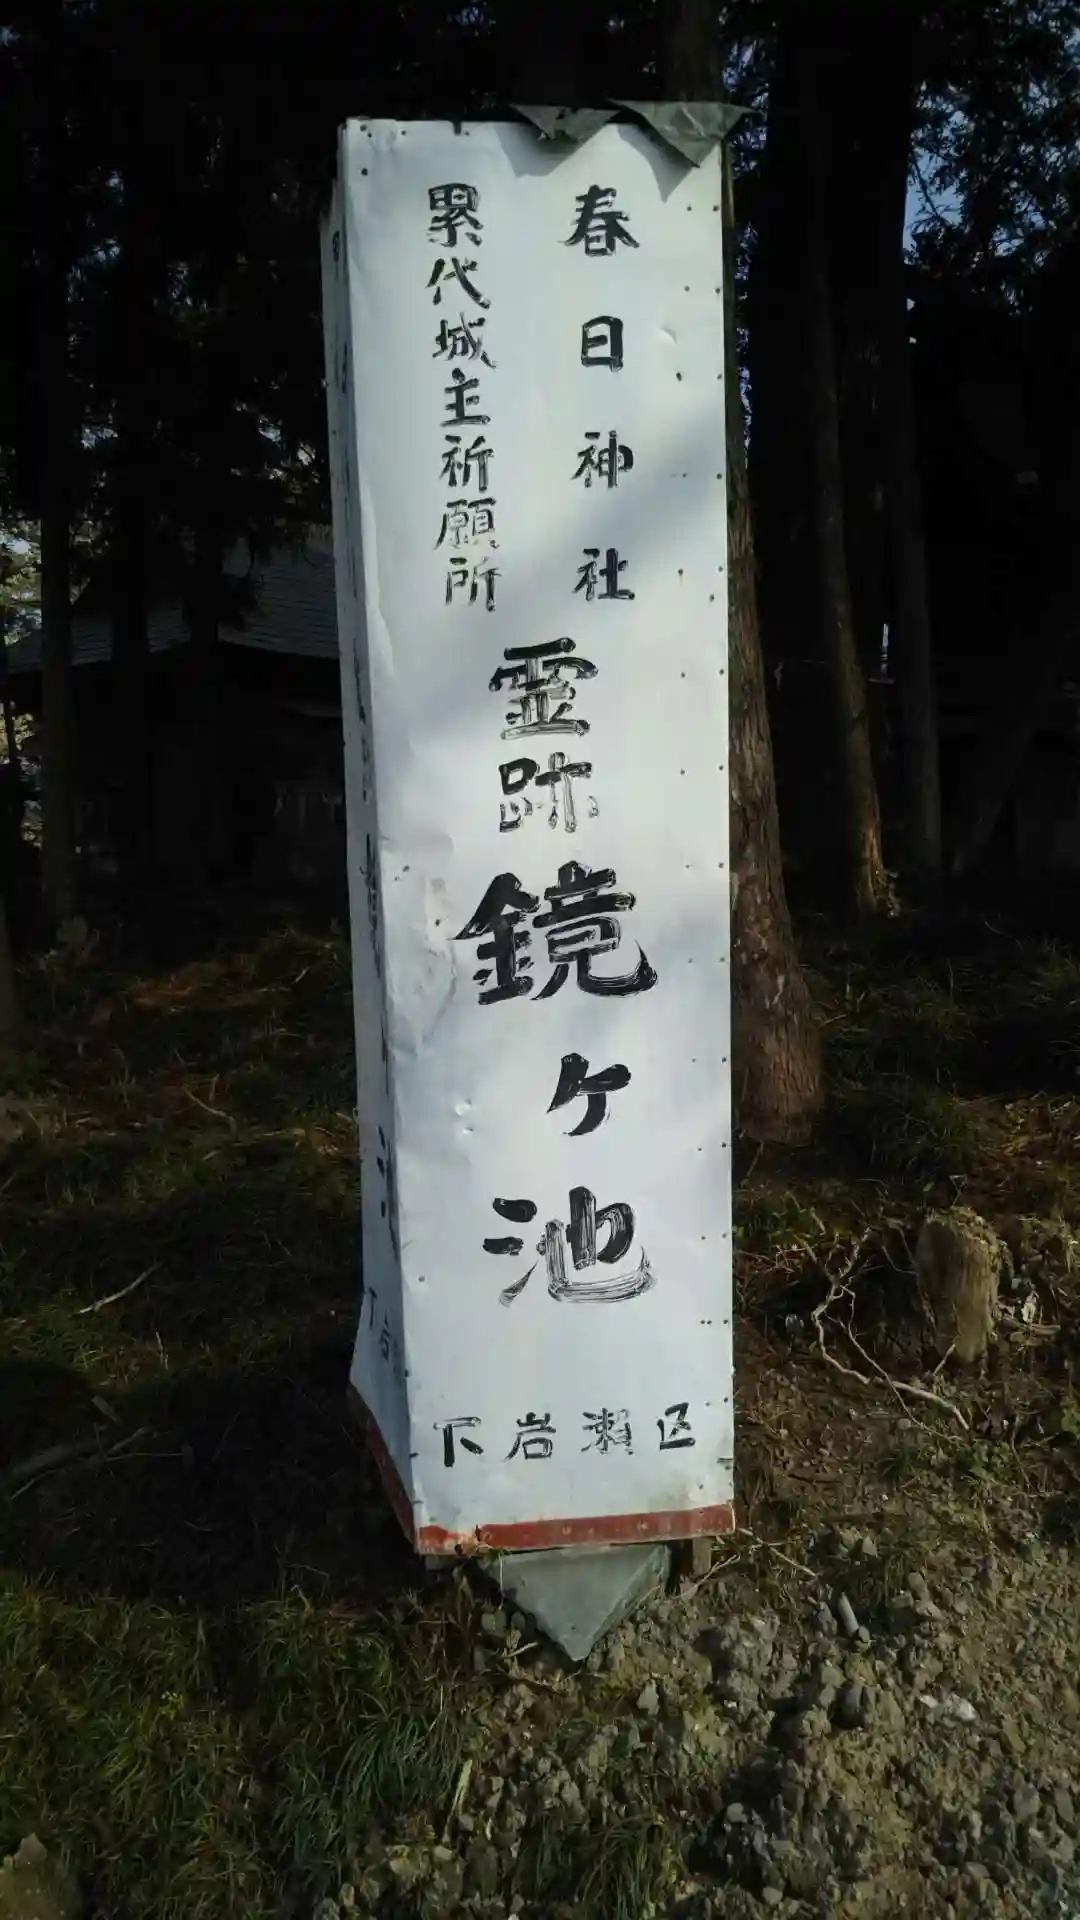 春日神社
累代城主祈願所
霊跡鏡ヶ池
下岩瀬区